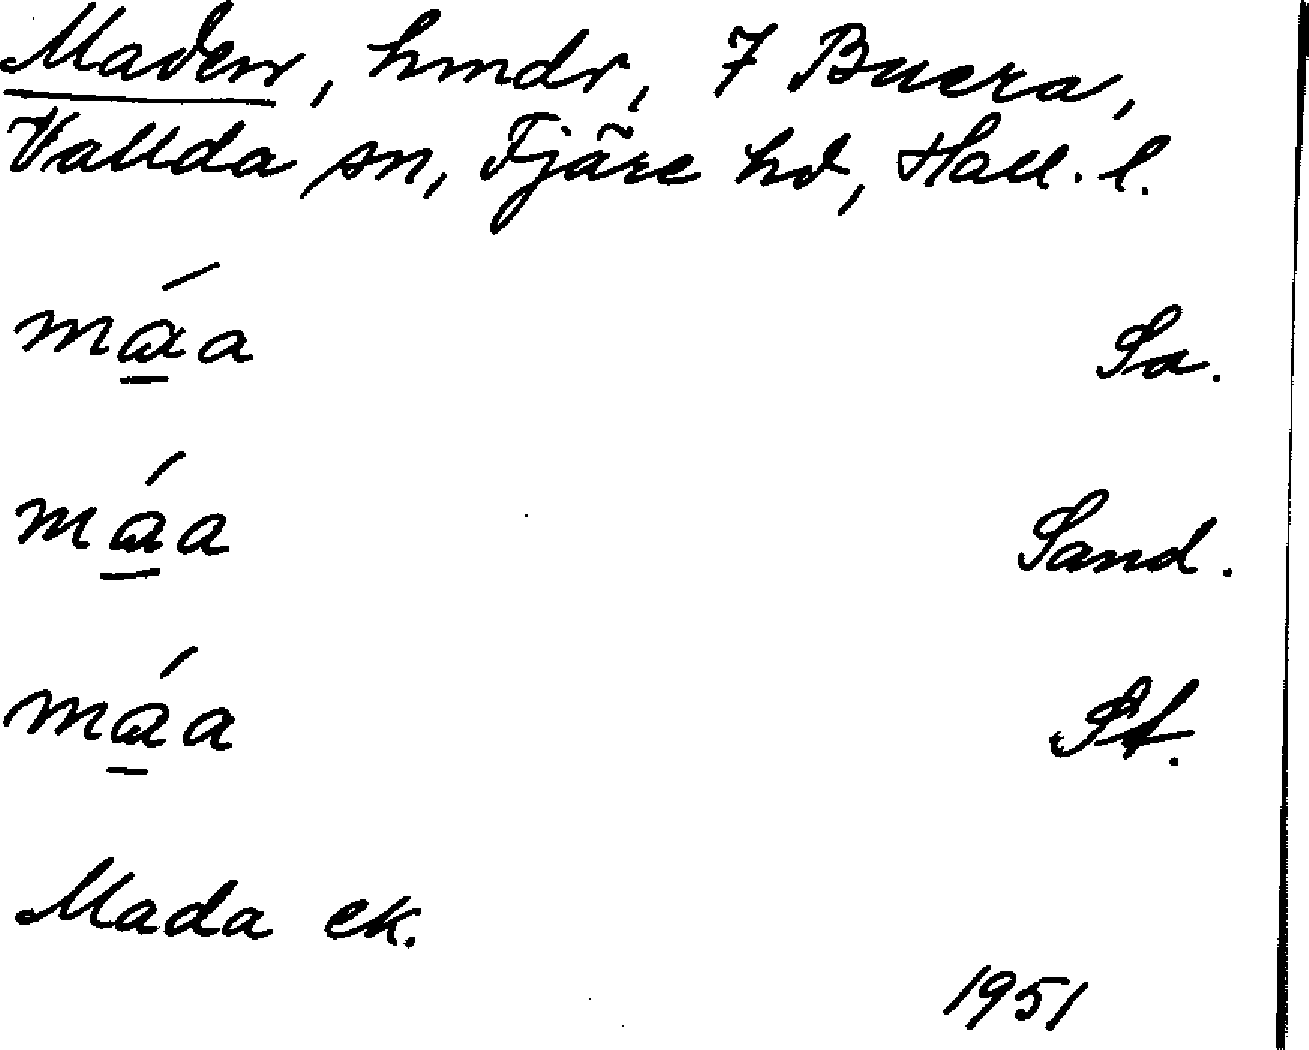 Maden, hmdr, 7 Buera,
Vallda sn, Fjäre hd, Hall. l.
má̲a Sa.
má̲a Sand.
má̲a St.
Mada ek.
1951